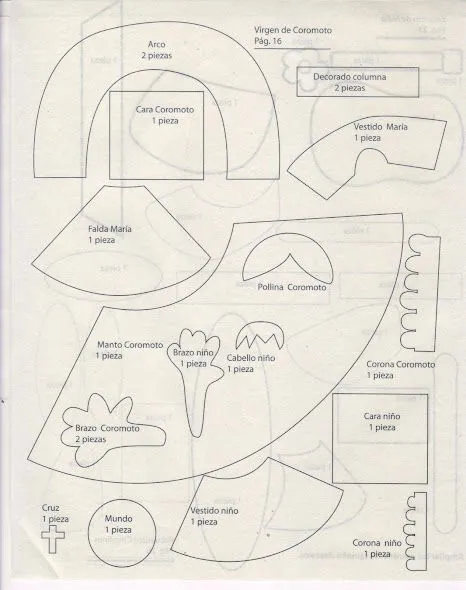 Virgen de Coromoto
Pág. 16
Arco
2 piezas
Decorado columna
2 piezas
Cara Coromoto
1 pieza
Vestido María
1 pieza
Falda María
1 pieza
Pollina Coromoto
Manto Coromoto
1 pieza
Brazo niño
1 pieza
Cabello niño
1 pieza
Corona Coromoto
1 pieza
Brazo Coromoto
2 piezas
Cara niño
1 pieza
Cruz
1 pieza
Mundo
1 pieza
Vestido niño
1 pieza
Corona niño
1 pieza